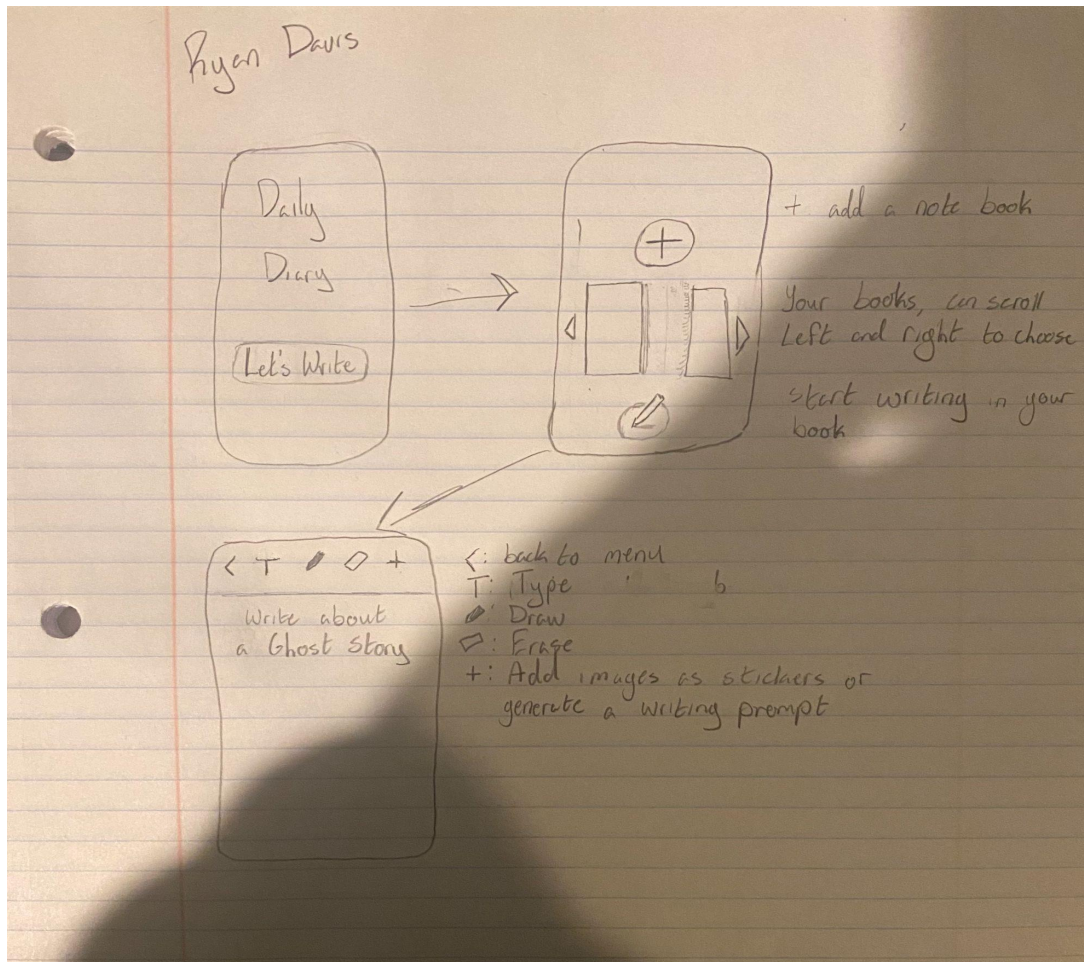 Ryan Davis
Daily
Diary
Let's Write
+ add a note book
Your books, can scroll
Left and right to choose
start writing in your
book
< T +
Write about
a Ghost Story
<: back to menu
T: Type
b
: Draw
: Erase
+: Add images as stickers or
generate a writing prompt